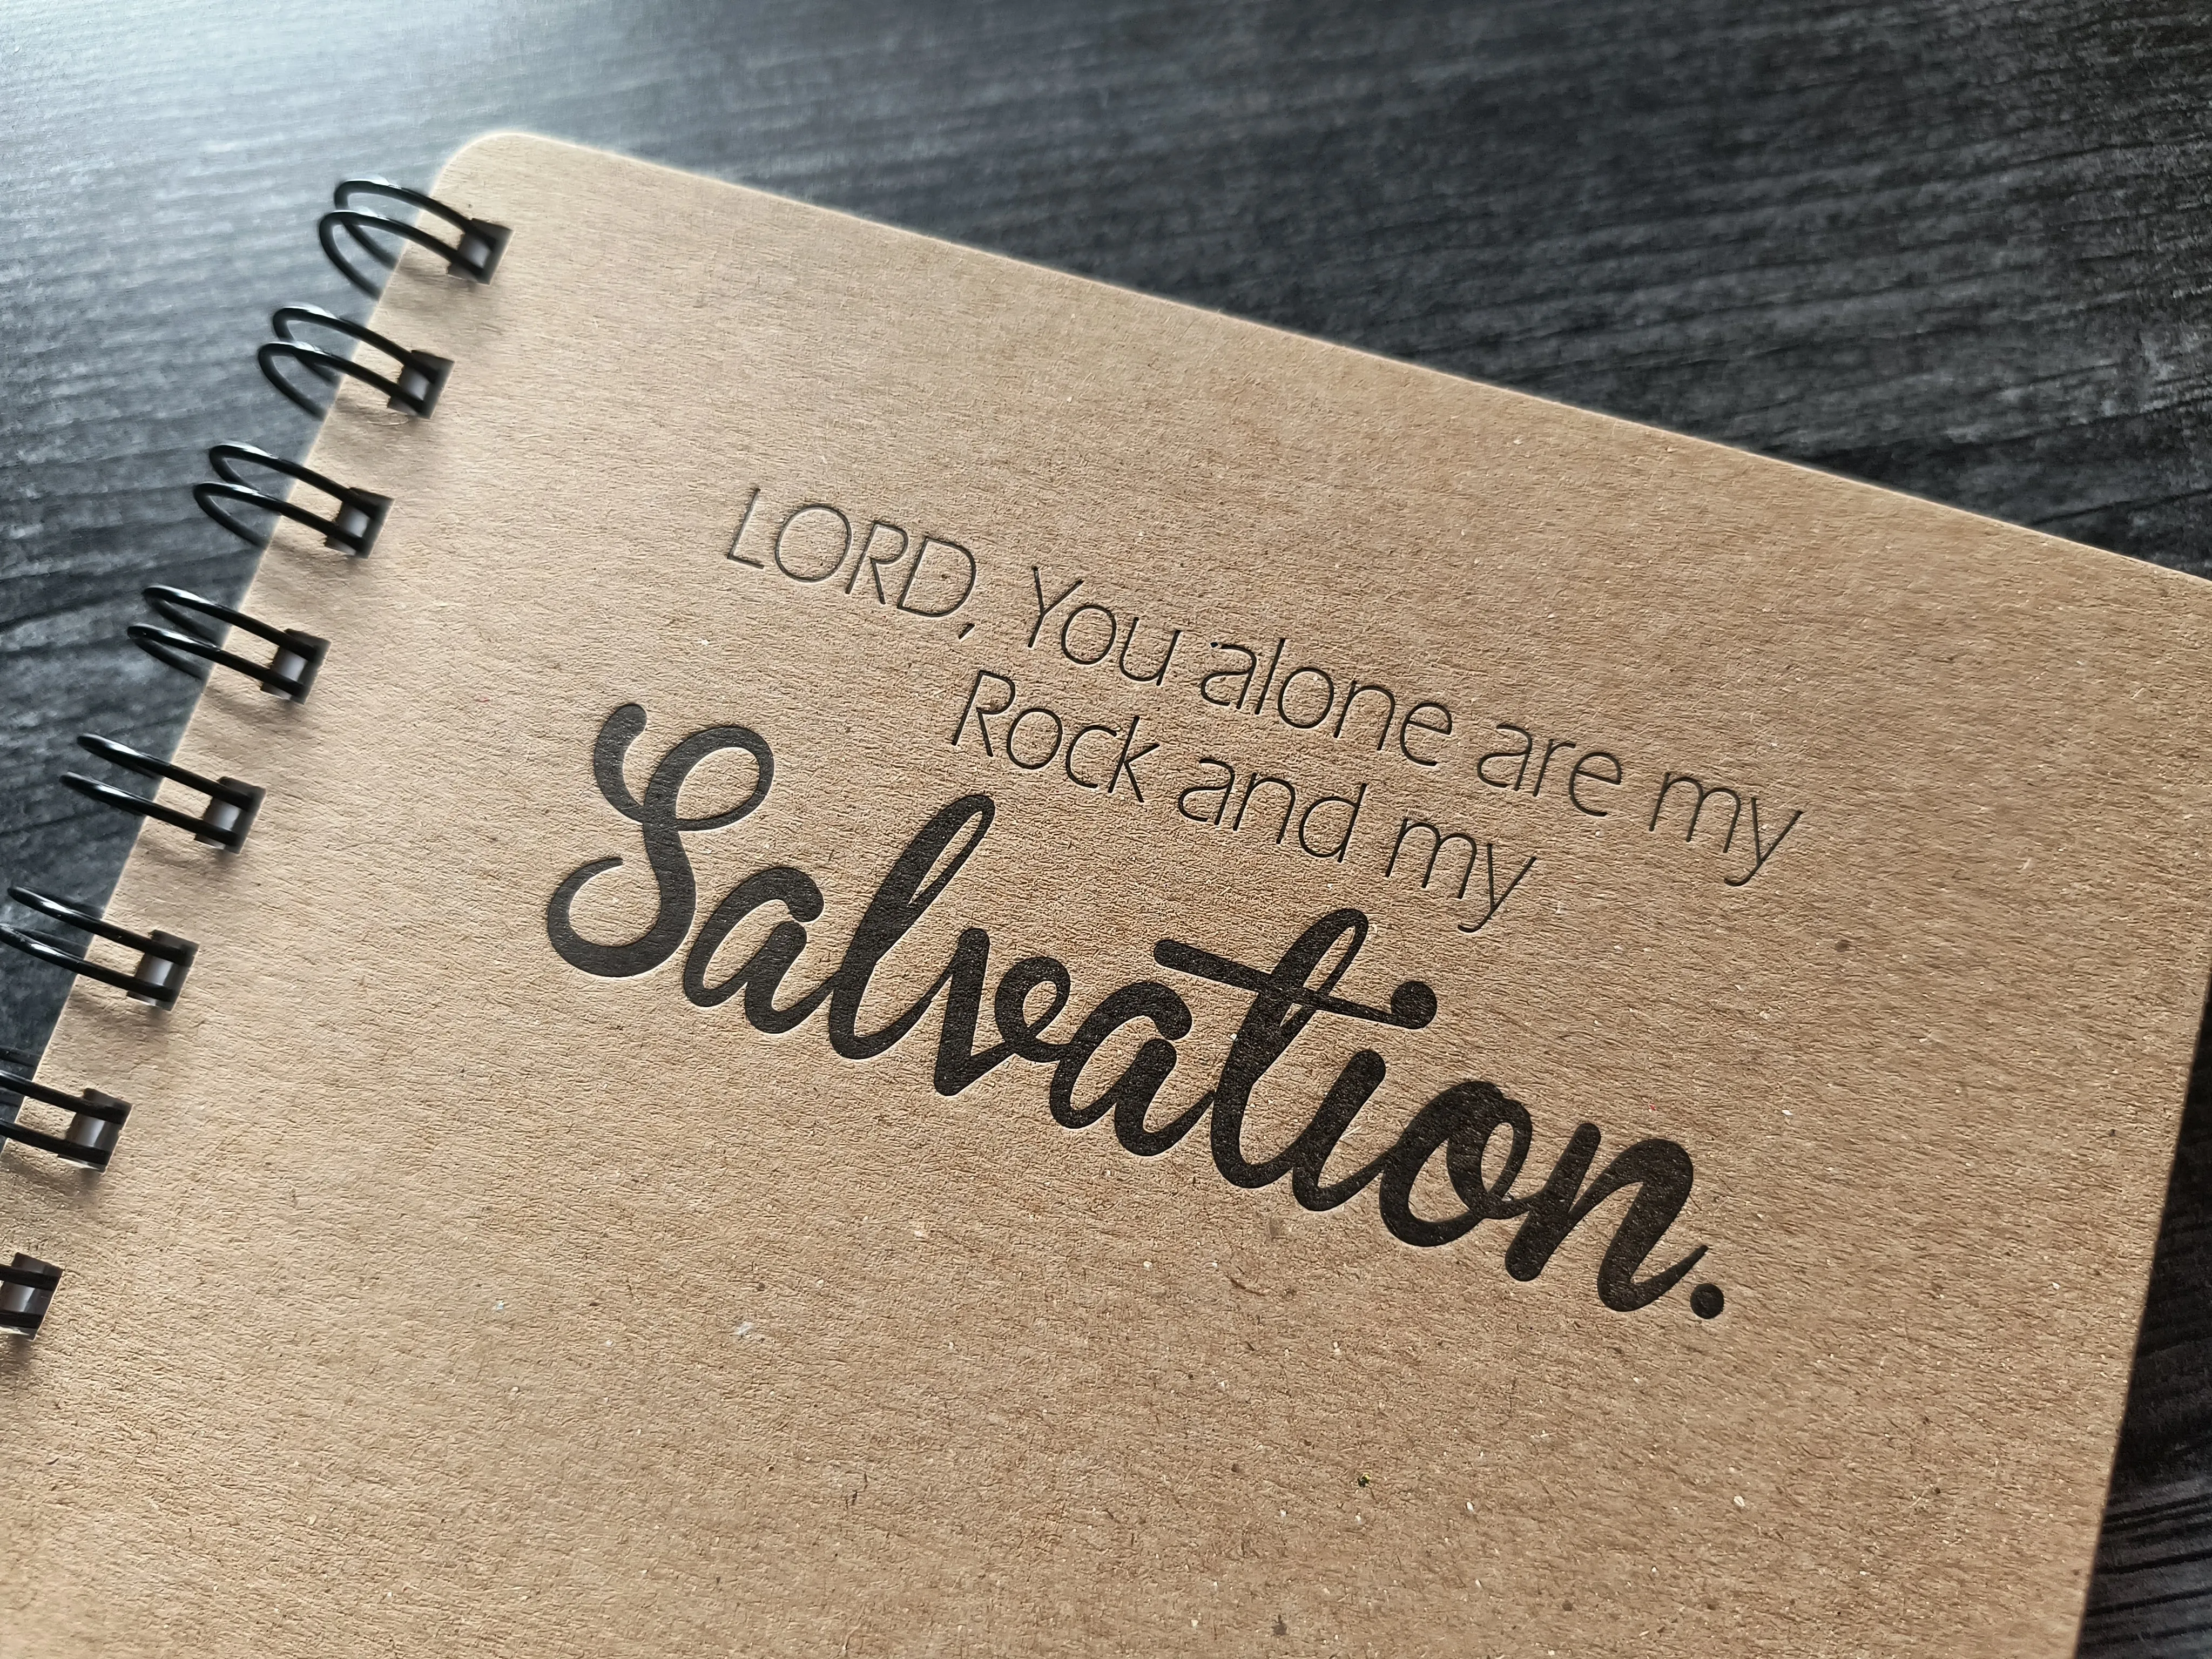 LORD, You alone are my
Rock and my
Salvation.